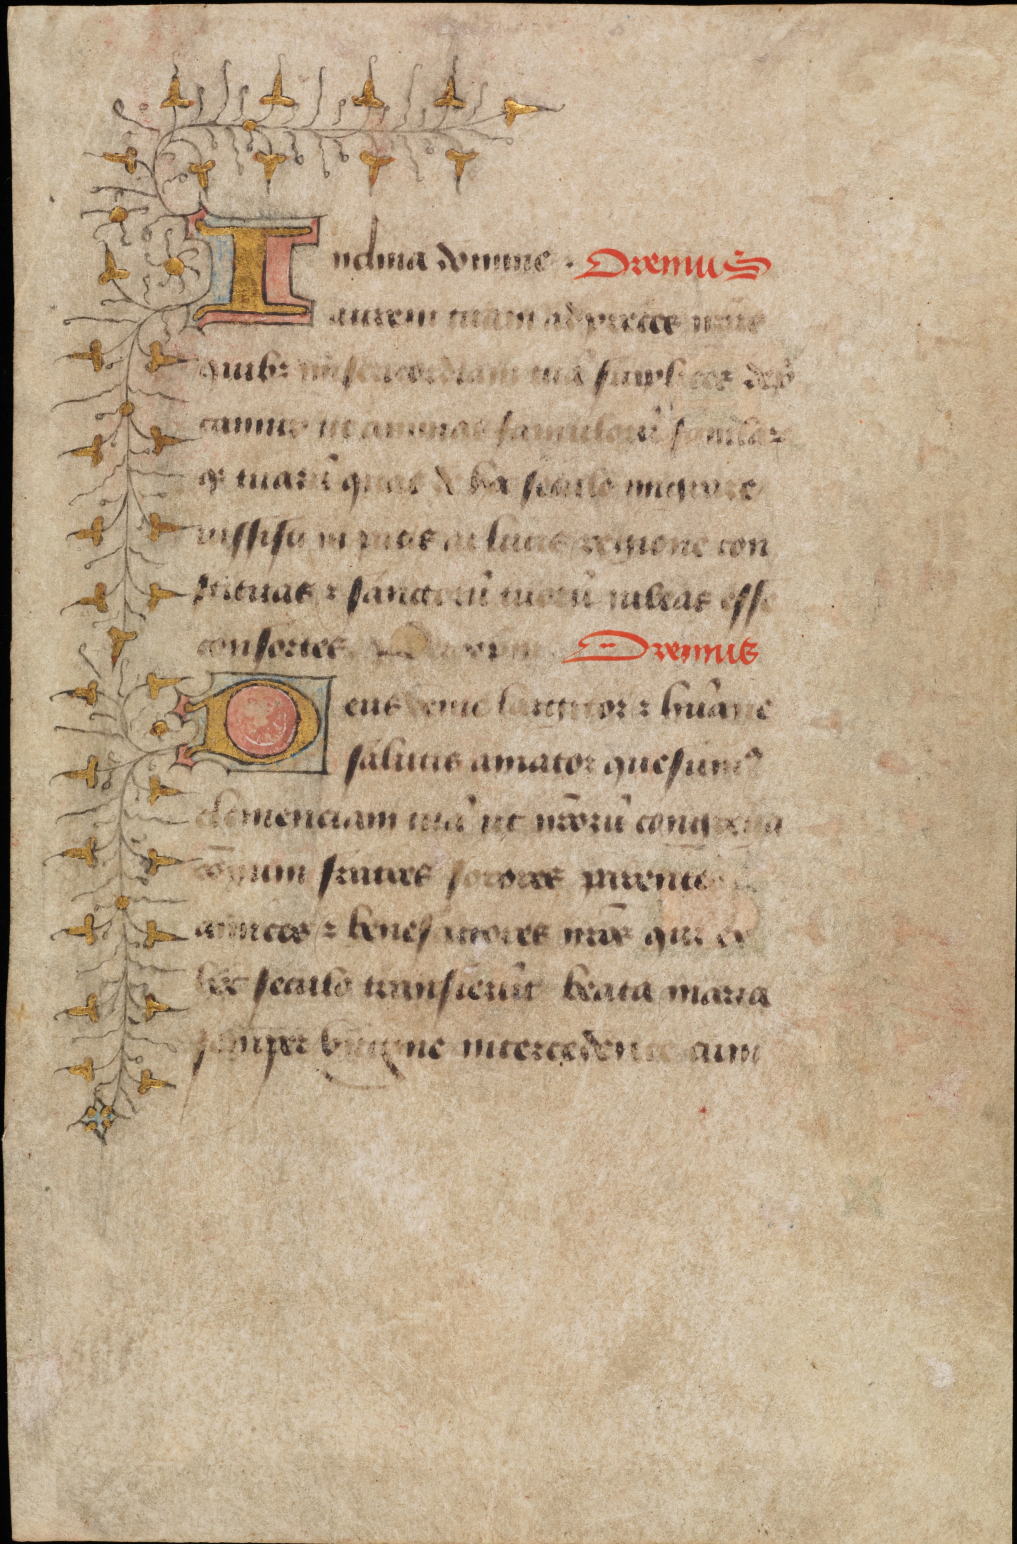 Inclina domine · Oremus
aurem tuam ad preces nr̃as
quib⁊ misericordiam tuã supplices dep̃
camur ut animas famulorũ famula⁊
q⁊ tuarũ quas de hoc seculo migrare
iussisti in pacis ac lucis regione con
stituas ⁊ sanctorũ tuorũ iubeas esse
consortes Oremus
Deus venie largitor ⁊ humãne
salutis amator quesumꝰ
clemenciam tuã ut nr̃orũ congrega
cõnum fratres sorores parentes
amicos ⁊ benefactores nr̃os qui ex
hoc seculo transierũt beata maria
semper virgine intercedente cum